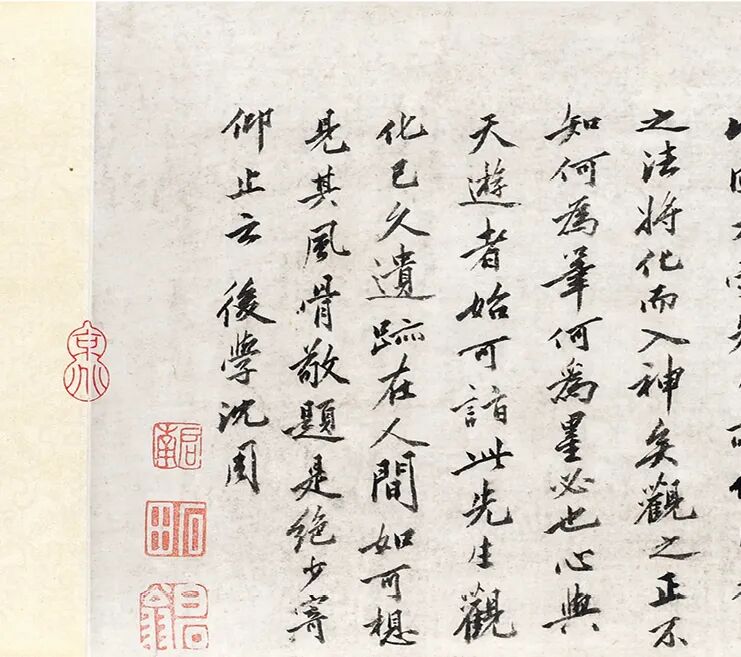 之法將化而入神矣觀之正不
如何爲筆何爲墨必也心與
天遊者始可詣此先生觀
化已久遺跡在人間如可想
見其風骨敬題是絶以寄
仰止云後學沈周
啟南
石田